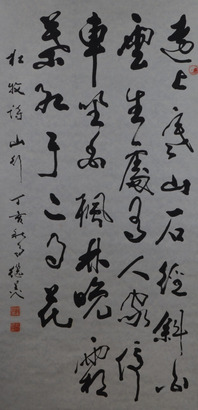 遠上寒山石徑斜白
雲生處有人家停
車坐愛楓林晚霜
葉紅于二月花
杜牧詩 山行 丁亥秋月